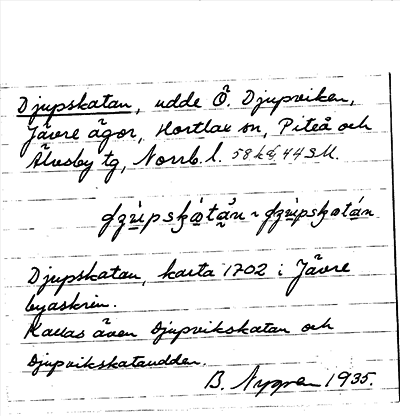 Djupskatan, udde Ö. Djupviken,
Jävre ägor, Hortlax sn, Piteå och
Älvsby tg, Norrb. l. 58 kd, 44 SM.
Djupskatan, karta 1702 i Jävre
byaskrin.
Kallas även Djupvikskatan och
Djupvikskataudden.
B. Nygren 1935.